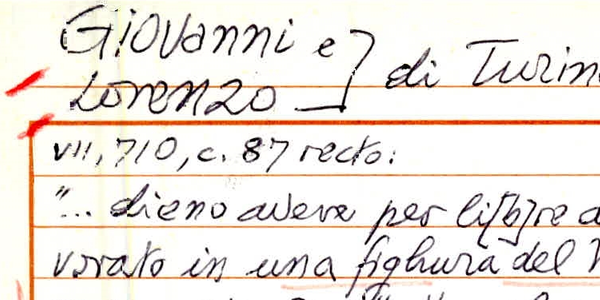 Giovanni e
Lorenzo
di Turin
VII, 710, c. 87 recto:
"... dieno avere per li[b]re
vorato in una fighura del